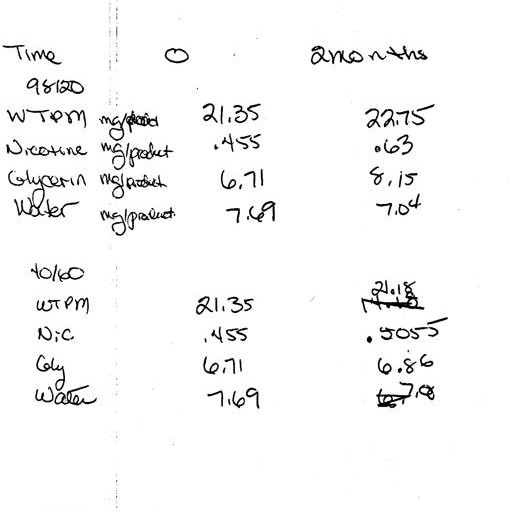 Time 0 2 months
98120
WTPM mg/product 21.35 22.75
Nicotine mg/product .455 .63
Glycerin mg/product 6.71 8.15
Water mg/product 7.69 7.04
40/60
WTPM 21.35 21.18
Nic. .455 .5055
Gly 6.71 6.86
Water 7.69 7.08